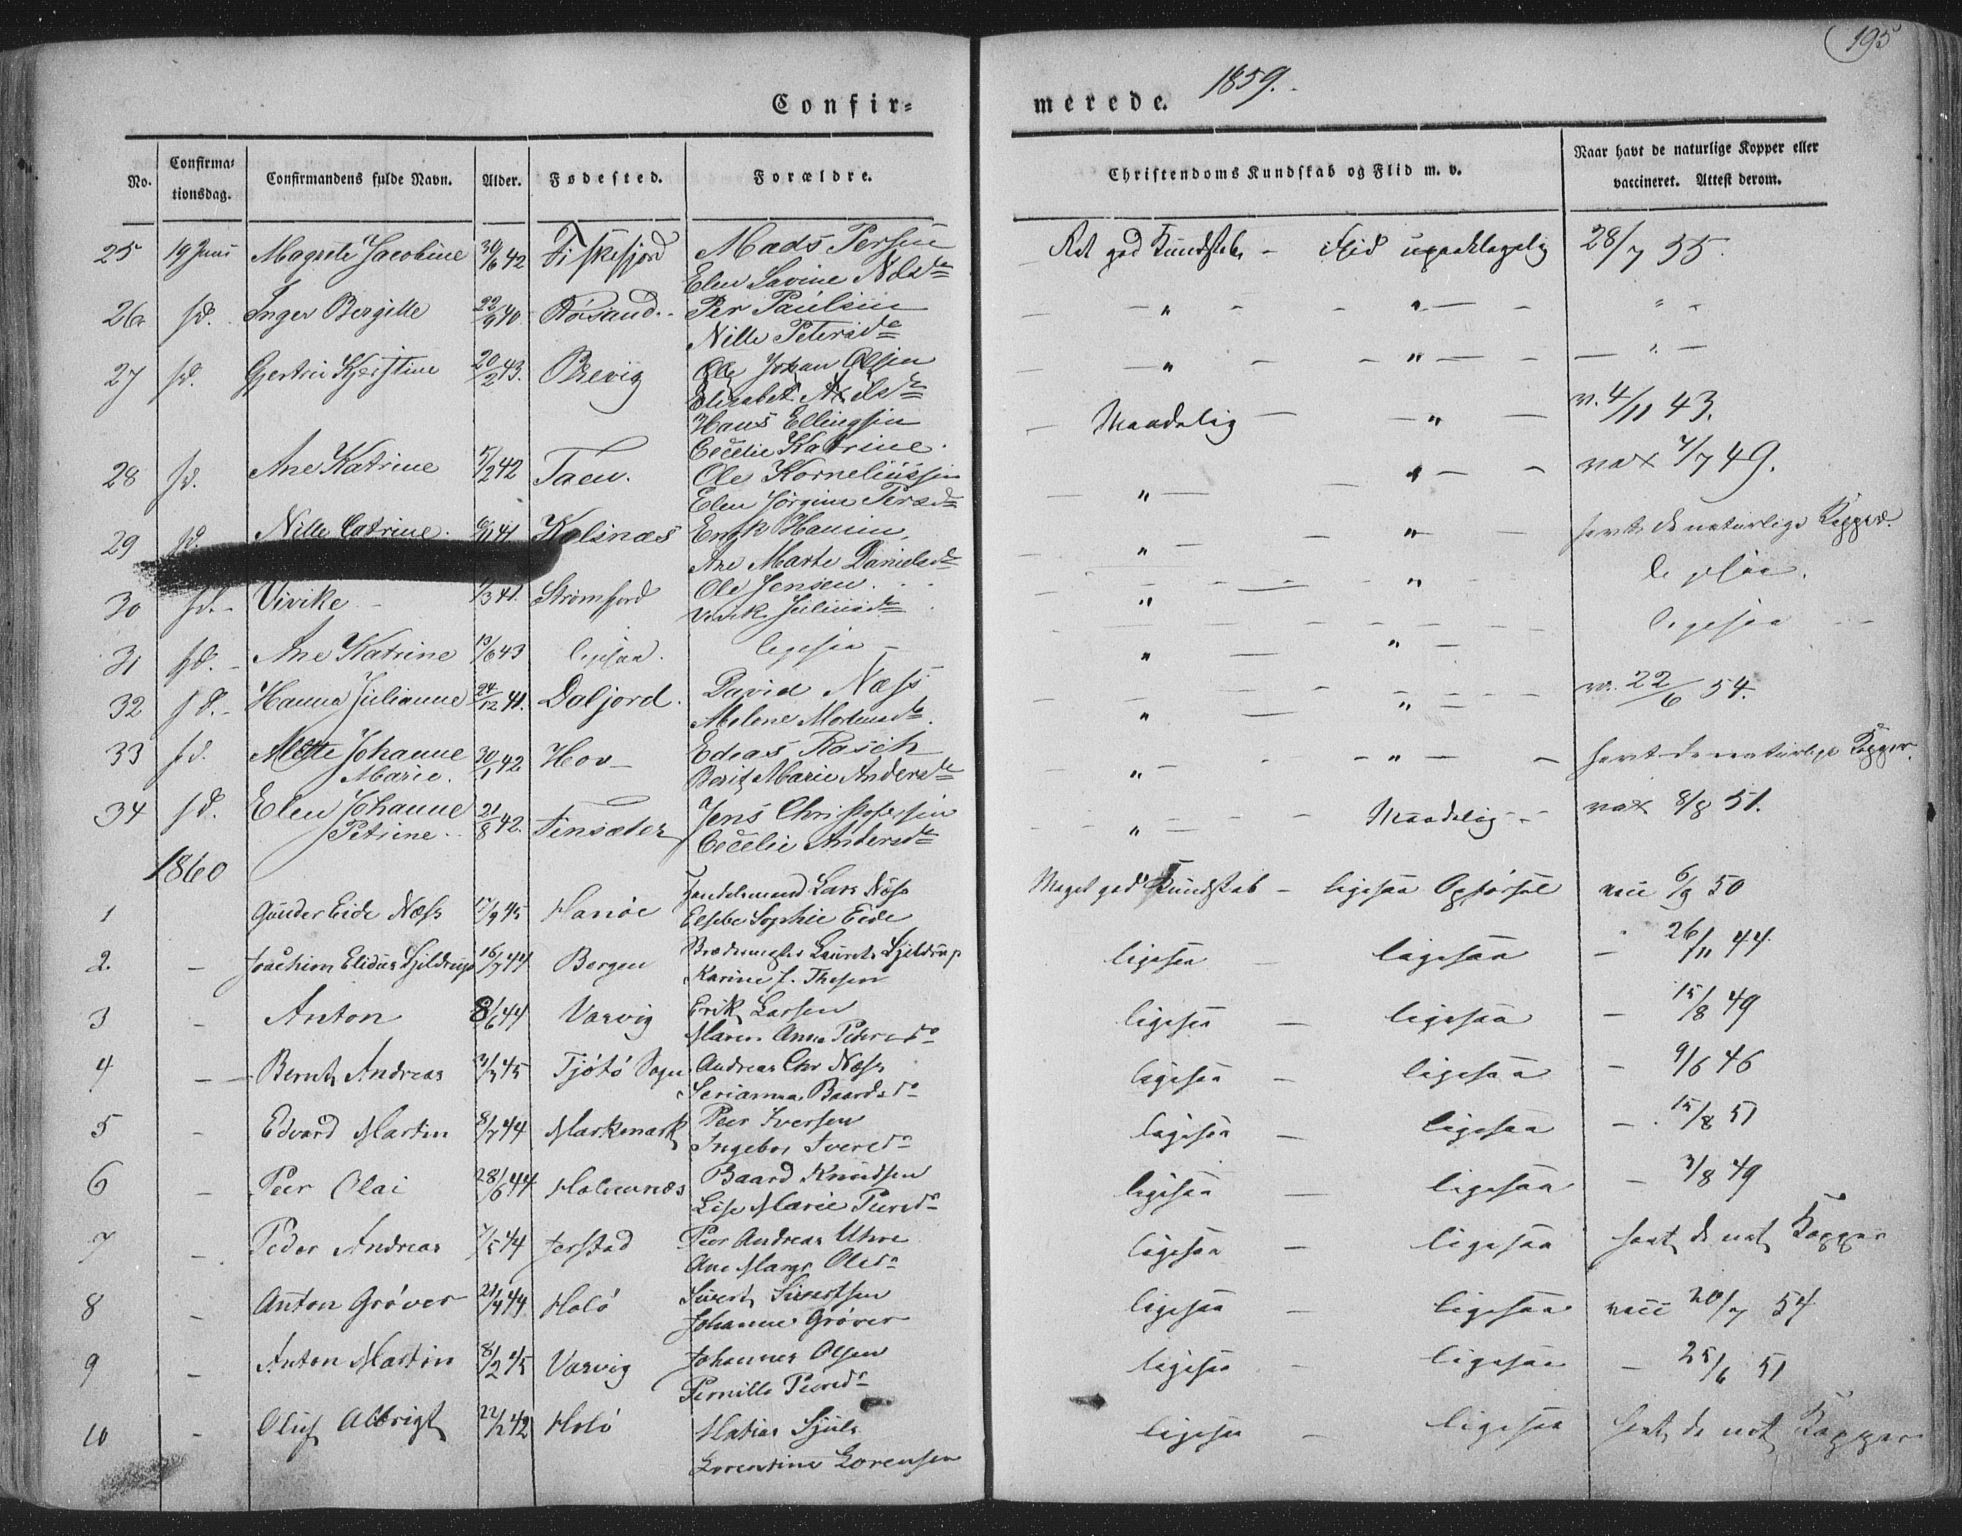 195
1859.
Confir= merede.
No. Confirma=tionsdag. Confirmandens fulde Navn. Alder. Fødested. Forældre. Christendoms Kundskab og Flid m. v. Naar havt de naturlige Kopper eller vaccineret. Attest derom.
25 19 Juni Magrete Jacobine 30/6 42 Fiskefjord Mads Persen Ret god Kundskab - Flid upaaklagelig 28/7 55.
Elen Lavine Nilsd
26 sd. Inger Bergitte 22/9 40. Røsand. Per Paulsen " "
Nille Petersd
27 sd. Gjertru Kjerstine 20/2 43. Brevig Ole Johan Olsen " "
Elisabet Nilsd
Hans Ellingsen Maadelig " v. 4/11 43.
Cecelie Katrine
28 sd. Ane Katrine 42 Taen. Ole Korneliussen " " vax 7/7 49.
Elen Jørgine Persd
29 sd. Nille Catrine. 41 Kalsnæs Hansen " " havt de naturlige Kopper.
Ane Marte Danielsd
30 sd. Vivike 41. Strømfjord Ole Jensen " "
Juliusd
31 sd. Ane Katrine 19/6 43 ligesaa. ligesaa " " ligesaa
32 sd. Hanna Julianne 24/12 41. Daljord. David Næss " " v. 22/6 54.
Malene Mortensd
33 sd. Mette Johanne 30/1 42 Hov Rasch " " havt de naturlige Kopper.
Marie. Berit Marie Andersd
34 sd. Elen Johanne 21/8 42. Finsæter Jens Christophersen " Maadelig vax 8/8 51.
Petrine Cecelie Andersd
1860
1 Gunder Eide Næss 17/9 45 Hanøe Handelsmand Lars Næss Meget god Kundskab - ligesaa Opførsel vacc 6/9 50
Elsebe Sophie Eide
2. - Joachim Elidus Hjeldrup 16/7 44 Bergen Laurits Hjeldrup ligesaa ligesaa - 26/11 44.
Karine J. Thesen
3 - Anton 8/6 44 Varvig Erik Larsen ligesaa - ligesaa - 15/8 49
Maren Anna Pedersd
4 - Bernt Andreas 3/7 45 Tjøtø Sogn Andreas Chr Næss ligesaa - ligesaa - 9/6 46
Serianna Baardsd
5 - Edvard Martin 8/7 44 Markmark Peer Iversen ligesaa - ligesaa - 15/8 51
Ingebor Iversd
6 - Peer Olai 28/6 44 Holmnæs Baard Knudsen ligesaa - ligesaa - 3/8 49
Lise Marie Peersd
7 - Peder Andreas 7/5 44 Jerstad Peer Andreas ligesaa - ligesaa havt de nat Kopper
Ane Margr Olsd
8 - Anton Grøver 21/4 44 Holø Sivert Sivertsen ligesaa - ligesaa vacc 20/7 54
Johanna Grøver
9 - Anton Martin 8/2 45 Varvig Johannes Olsen ligesaa - ligesaa - 25/6 51
Pernille Peersd
10 - Oluf Albrigt 42 Holø Matias Hjuls ligesaa - ligesaa havt de nat Kopper
Lorentine Lorensen